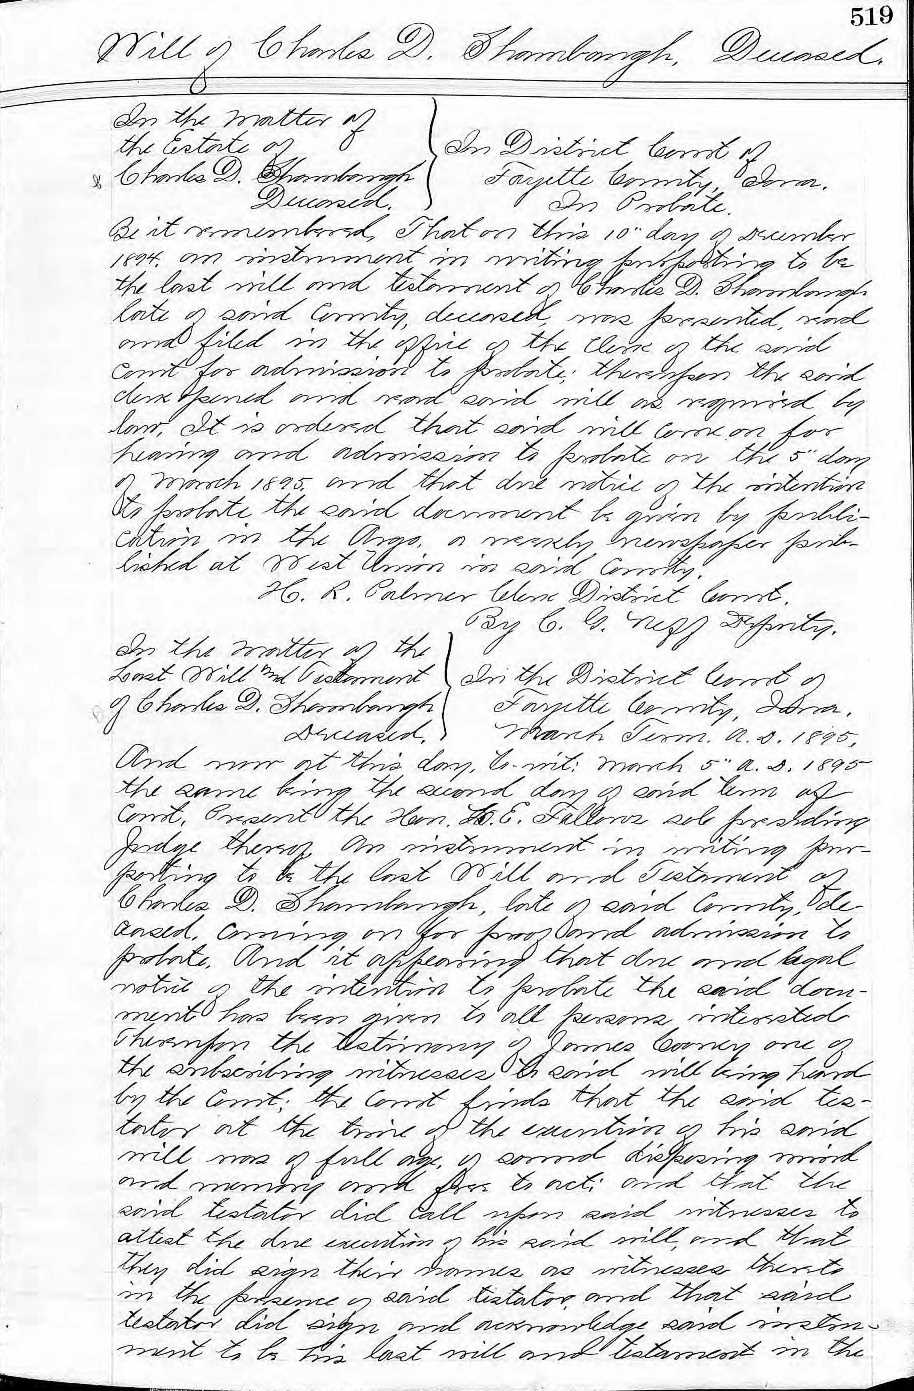 519
Will of Charles D. Shambaugh, Deceased.
In the matter of
the Estate of
Charles D. Shambaugh
Deceased.
In District Court of
Fayette County, Iowa.
In Probate.
Be it remembered, That on this 10" day of December
1894, an instrument in writing purporting to be
the last will and testament of Charles D. Shambaugh
late of said County, deceased, was presented, read
and filed in the office of the Clerk of the said
Court for admission to probate; thereupon the said
clerk opened and read said will as required by
law. It is ordered that said will come on for
hearing and admission to probate on the 5" day
of March 1895, and that due notice of the intention
to probate the said document be given by publi-
cation in the Argo, a weekly newspaper pub-
lished at West Union in said County.
H. R. Palmer Clerk District Court.
By C. G. Neff Deputy.
In the matter of the
Last Will and Testament
of Charles D. Shambaugh
Deceased.
In the District Court of
Fayette County, Iowa.
March Term. A. D. 1895.
And now at this day, to-wit: March 5" A. D. 1895
the same being the second day of said term of
Court, Present the Hon. L. E. Fellows sole presiding
Judge thereof. An instrument in writing pur-
porting to be the last Will and Testament of
Charles D. Shambaugh, late of said County, de-
ceased, coming on for proof and admission to
probate. And it appearing that due and legal
notice of the intention to probate the said docu-
ment has been given to all persons interested
Thereupon the testimony of James Cooney one of
the subscribing witnesses to said will being heard
by the Court; the Court finds that the said tes-
tator at the time of the execution of his said
will was of full age, of sound disposing mind
and memory and free to act; and that the
said testator did call upon said witnesses to
attest the due execution of his said will, and that
they did sign their names as witnesses thereto
in the presence of said testator, and that said
testator did sign and acknowledge said instru-
ment to be his last will and testament in the